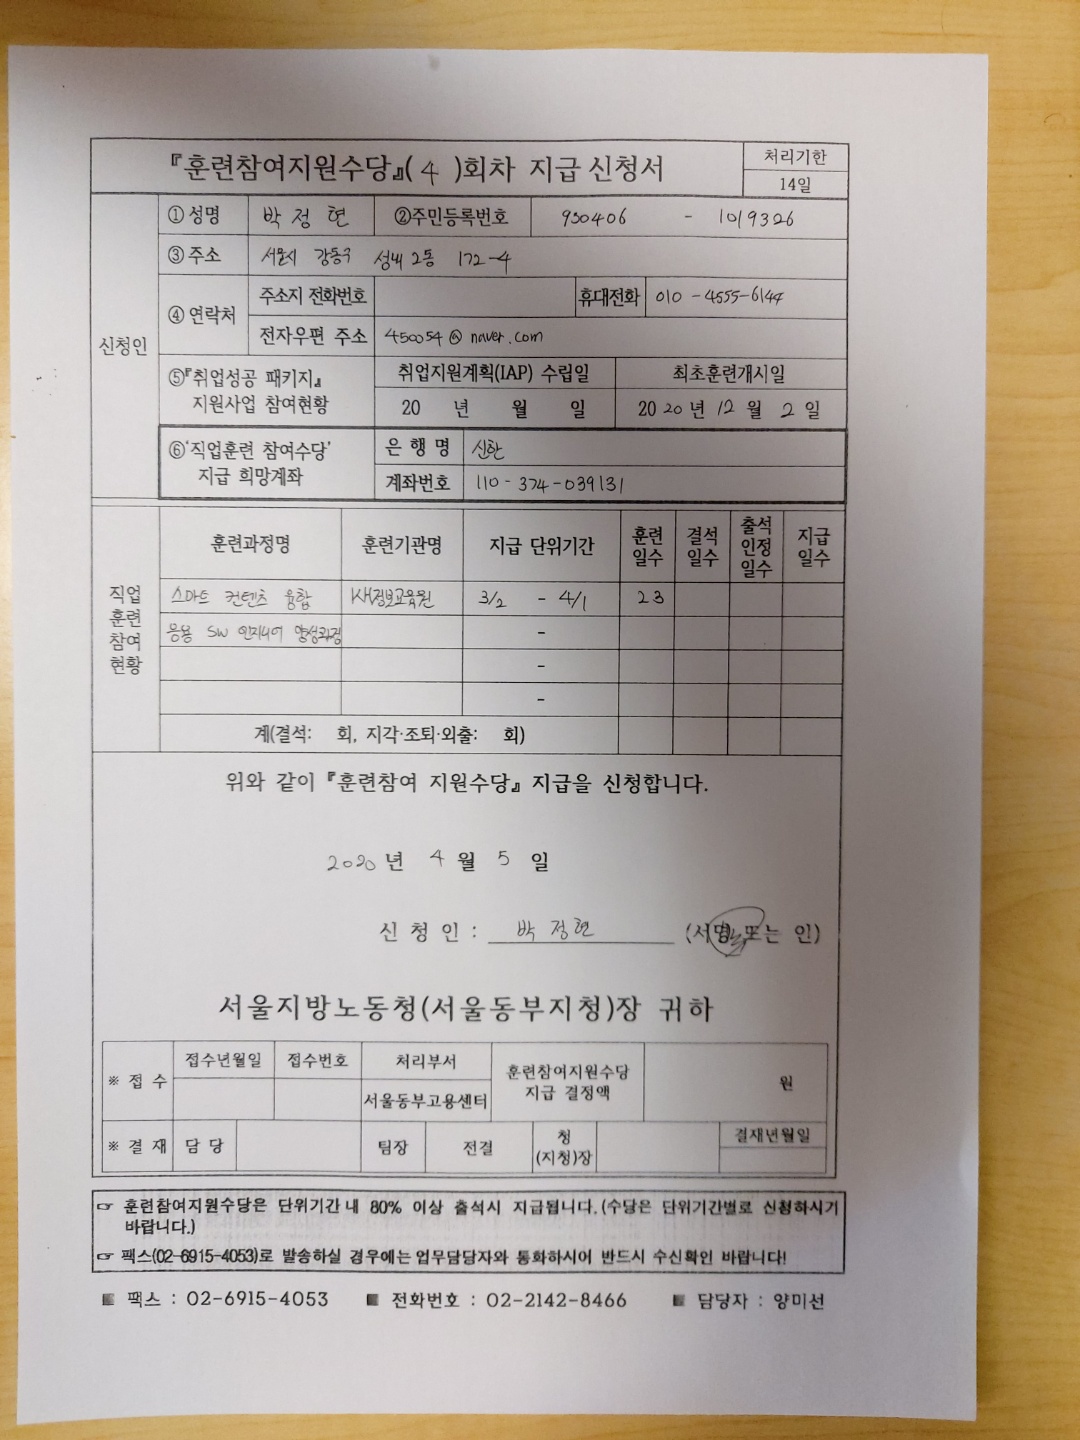 『훈련참여지원수당』( 4 )회차 지급 신청서
처리기한
14일
신청인
①성명 박정현 ②주민등록번호 930406 - 1019326
③주소 서울시 강동구 성내2동 172-4
④연락처
주소지 전화번호 휴대전화 010-4555-6144
전자우편 주소 450054@naver.com
⑤『취업성공 패키지』 지원사업 참여현황
취업지원계획(IAP) 수립일 최초훈련개시일
20 년 월 일 2020년 12월 2일
⑥'직업훈련 참여수당' 지급 희망계좌
은행명 신한
계좌번호 110-374-039131
직업 훈련 참여 현황
훈련과정명 훈련기관명 지급 단위기간 훈련일수 결석일수 출석인정일수 지급일수
스마트 컨텐츠 융합 KH정보교육원 3/2 - 4/1 23
응용 SW 엔지니어 양성과정 -
-
-
계(결석: 회, 지각·조퇴·외출: 회)
위와 같이 『훈련참여 지원수당』 지급을 신청합니다.
2020년 4월 5일
신청인 : 박정현 (서명 또는 인)
서울지방노동청(서울동부지청)장 귀하
※ 접수 접수년월일 접수번호 처리부서 훈련참여지원수당 지급 결정액 원
서울동부고용센터
※ 결재 담당 팀장 전결 청(지청)장 결재년월일
☞ 훈련참여지원수당은 단위기간 내 80% 이상 출석시 지급됩니다.(수당은 단위기간별로 신청하시기
바랍니다.)
☞ 팩스(02-6915-4053)로 발송하실 경우에는 업무담당자와 통화하시어 반드시 수신확인 바랍니다!
▣ 팩스 : 02-6915-4053 ▣ 전화번호 : 02-2142-8466 ▣ 담당자 : 양미선